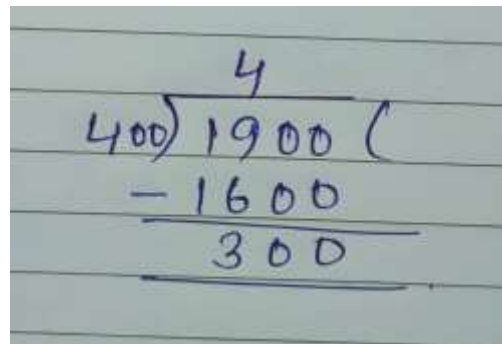 4
400) 1900 (
- 1600
300